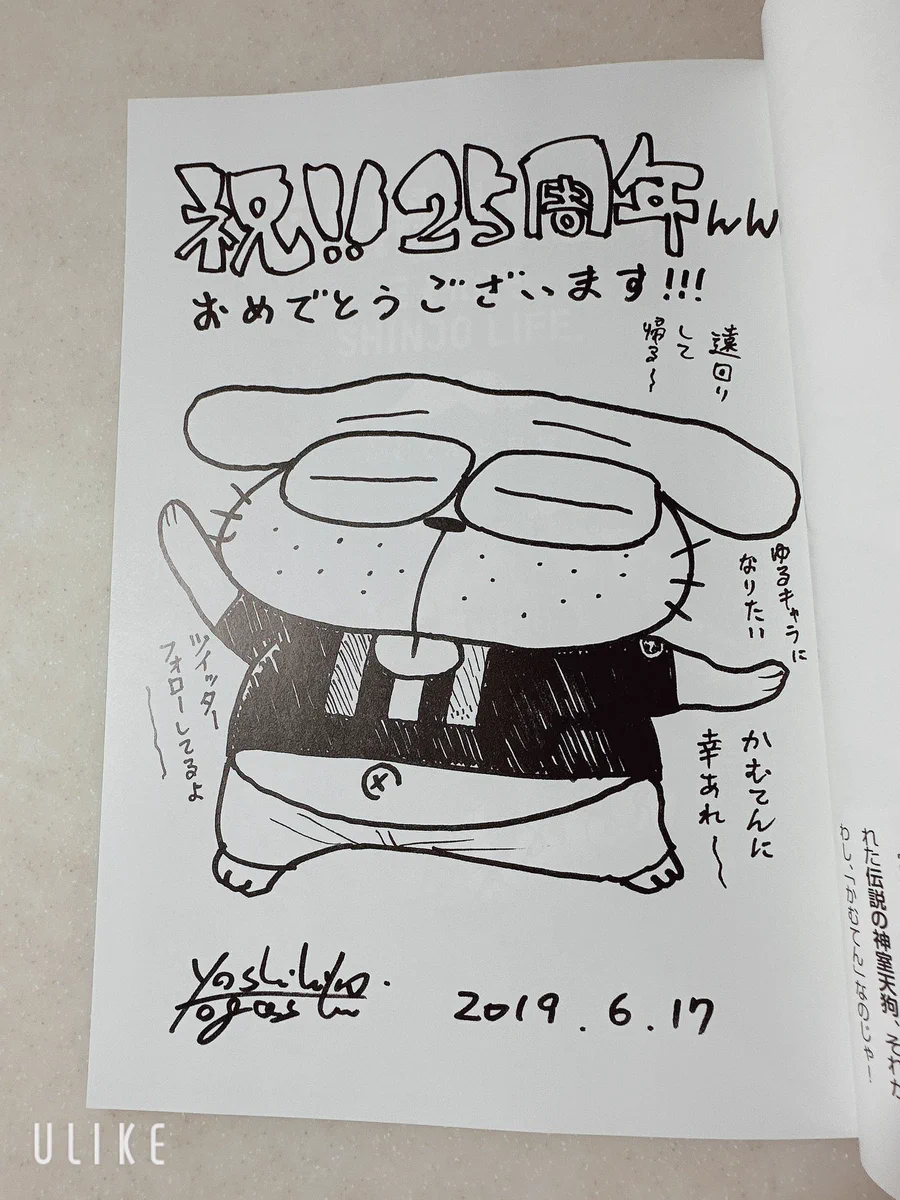 祝!!25周年んん
おめでとうございます!!!
遠回り
して
帰る〜
ゆるキャラに
なりたい
ツイッター
フォローしてるよ
かむてんに
幸あれ〜
Yoshihiro
Togashi
2019.6.17
SHINJO LIFE
れた伝説の神室天狗、それが
わし、「かむてん」なのじゃー
ULIKE